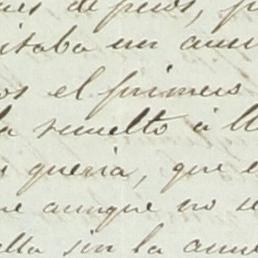 de pues,
itaba un
os el primero
la resuelto á
queria, que
e aunque no se
ella sin la